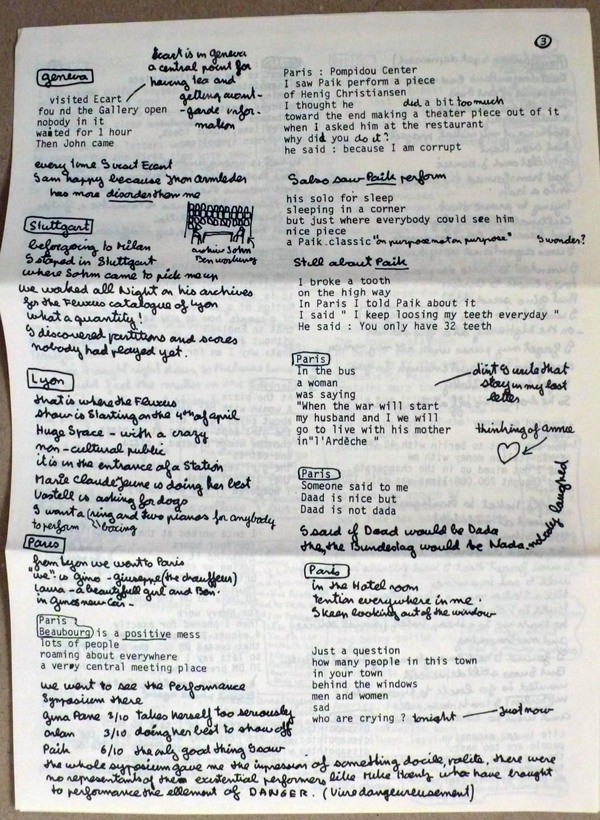 3
geneva
Ecart is in Geneva
a central point for
having tea and
getting avant-
garde infor-
mation
visited Ecart
fou nd the Gallery open
nobody in it
waited for 1 hour
Then John came
every time I visit Ecart
I am happy because John armleder
has more disorder than me
Stuttgart
archive Sohm
Ben working
before going to Milan
I stoped in Stuttgart
where Sohm came to pick me up
we worked all Night on his archives
for the Fluxus catalogue of Lyon
what a quantity!
I discovered partitions and scores
nobody had played yet.
Lyon
that is where the Fluxus
show is starting on the 4th of april
Huge Space - with a crazy
non-cultural public
it is in the entrance of a Station
Marie Claude Jeune is doing her best
Vostell is asking for dogs
I want a (ring and two pianos for anybody
to perform boxing
Paris
from Lyon we went to Paris
"we" is Gino - Giuseppe (the chauffeur)
Laura - a beautifull girl and Ben.
in Ginos new Car -
Paris
Beaubourg is a positive mess
lots of people
roaming about everywhere
a very central meeting place
we went to see the Performance
Symposium there
Gina Pane 3/10 takes herself too seriously
Orlan 3/10 doing her best to show off
Paik 6/10 the only good thing I saw
the whole symposium gave me the impression of something docile, polite, there were
no representants of the existential performers like who have brought
to performance the ellement of DANGER. (Vivre dangereusement)
Paris : Pompidou Center
I saw Paik perform a piece
of Henig Christiansen
I thought he did a bit too much
toward the end making a theater piece out of it
when I asked him at the restaurant
why did you do it?
he said : because I am corrupt
I also saw Paik perform
his solo for sleep
sleeping in a corner
but just where everybody could see him
nice piece
a Paik.classic "on purpose not on purpose" I wonder?
Still about Paik
I broke a tooth
on the high way
in Paris I told Paik about it
I said " I keep loosing my teeth everyday "
He said : You only have 32 teeth
Paris
In the bus
a woman
was saying
"When the war will start
my husband and I we will
go to live with his mother
in"l'Ardèche "
didnt I write that
story in my last
letter
thinking of annie
Paris
Someone said to me
Daad is nice but
Daad is not dada
I said if Daad would be Dada
the Bundestag would be Nada.
nobody laughed
Paris
in the Hotel room
tention everywhere in me.
I keep looking out of the window
Just a question
how many people in this town
in your town
behind the windows
men and women
sad
who are crying ? tonight just now